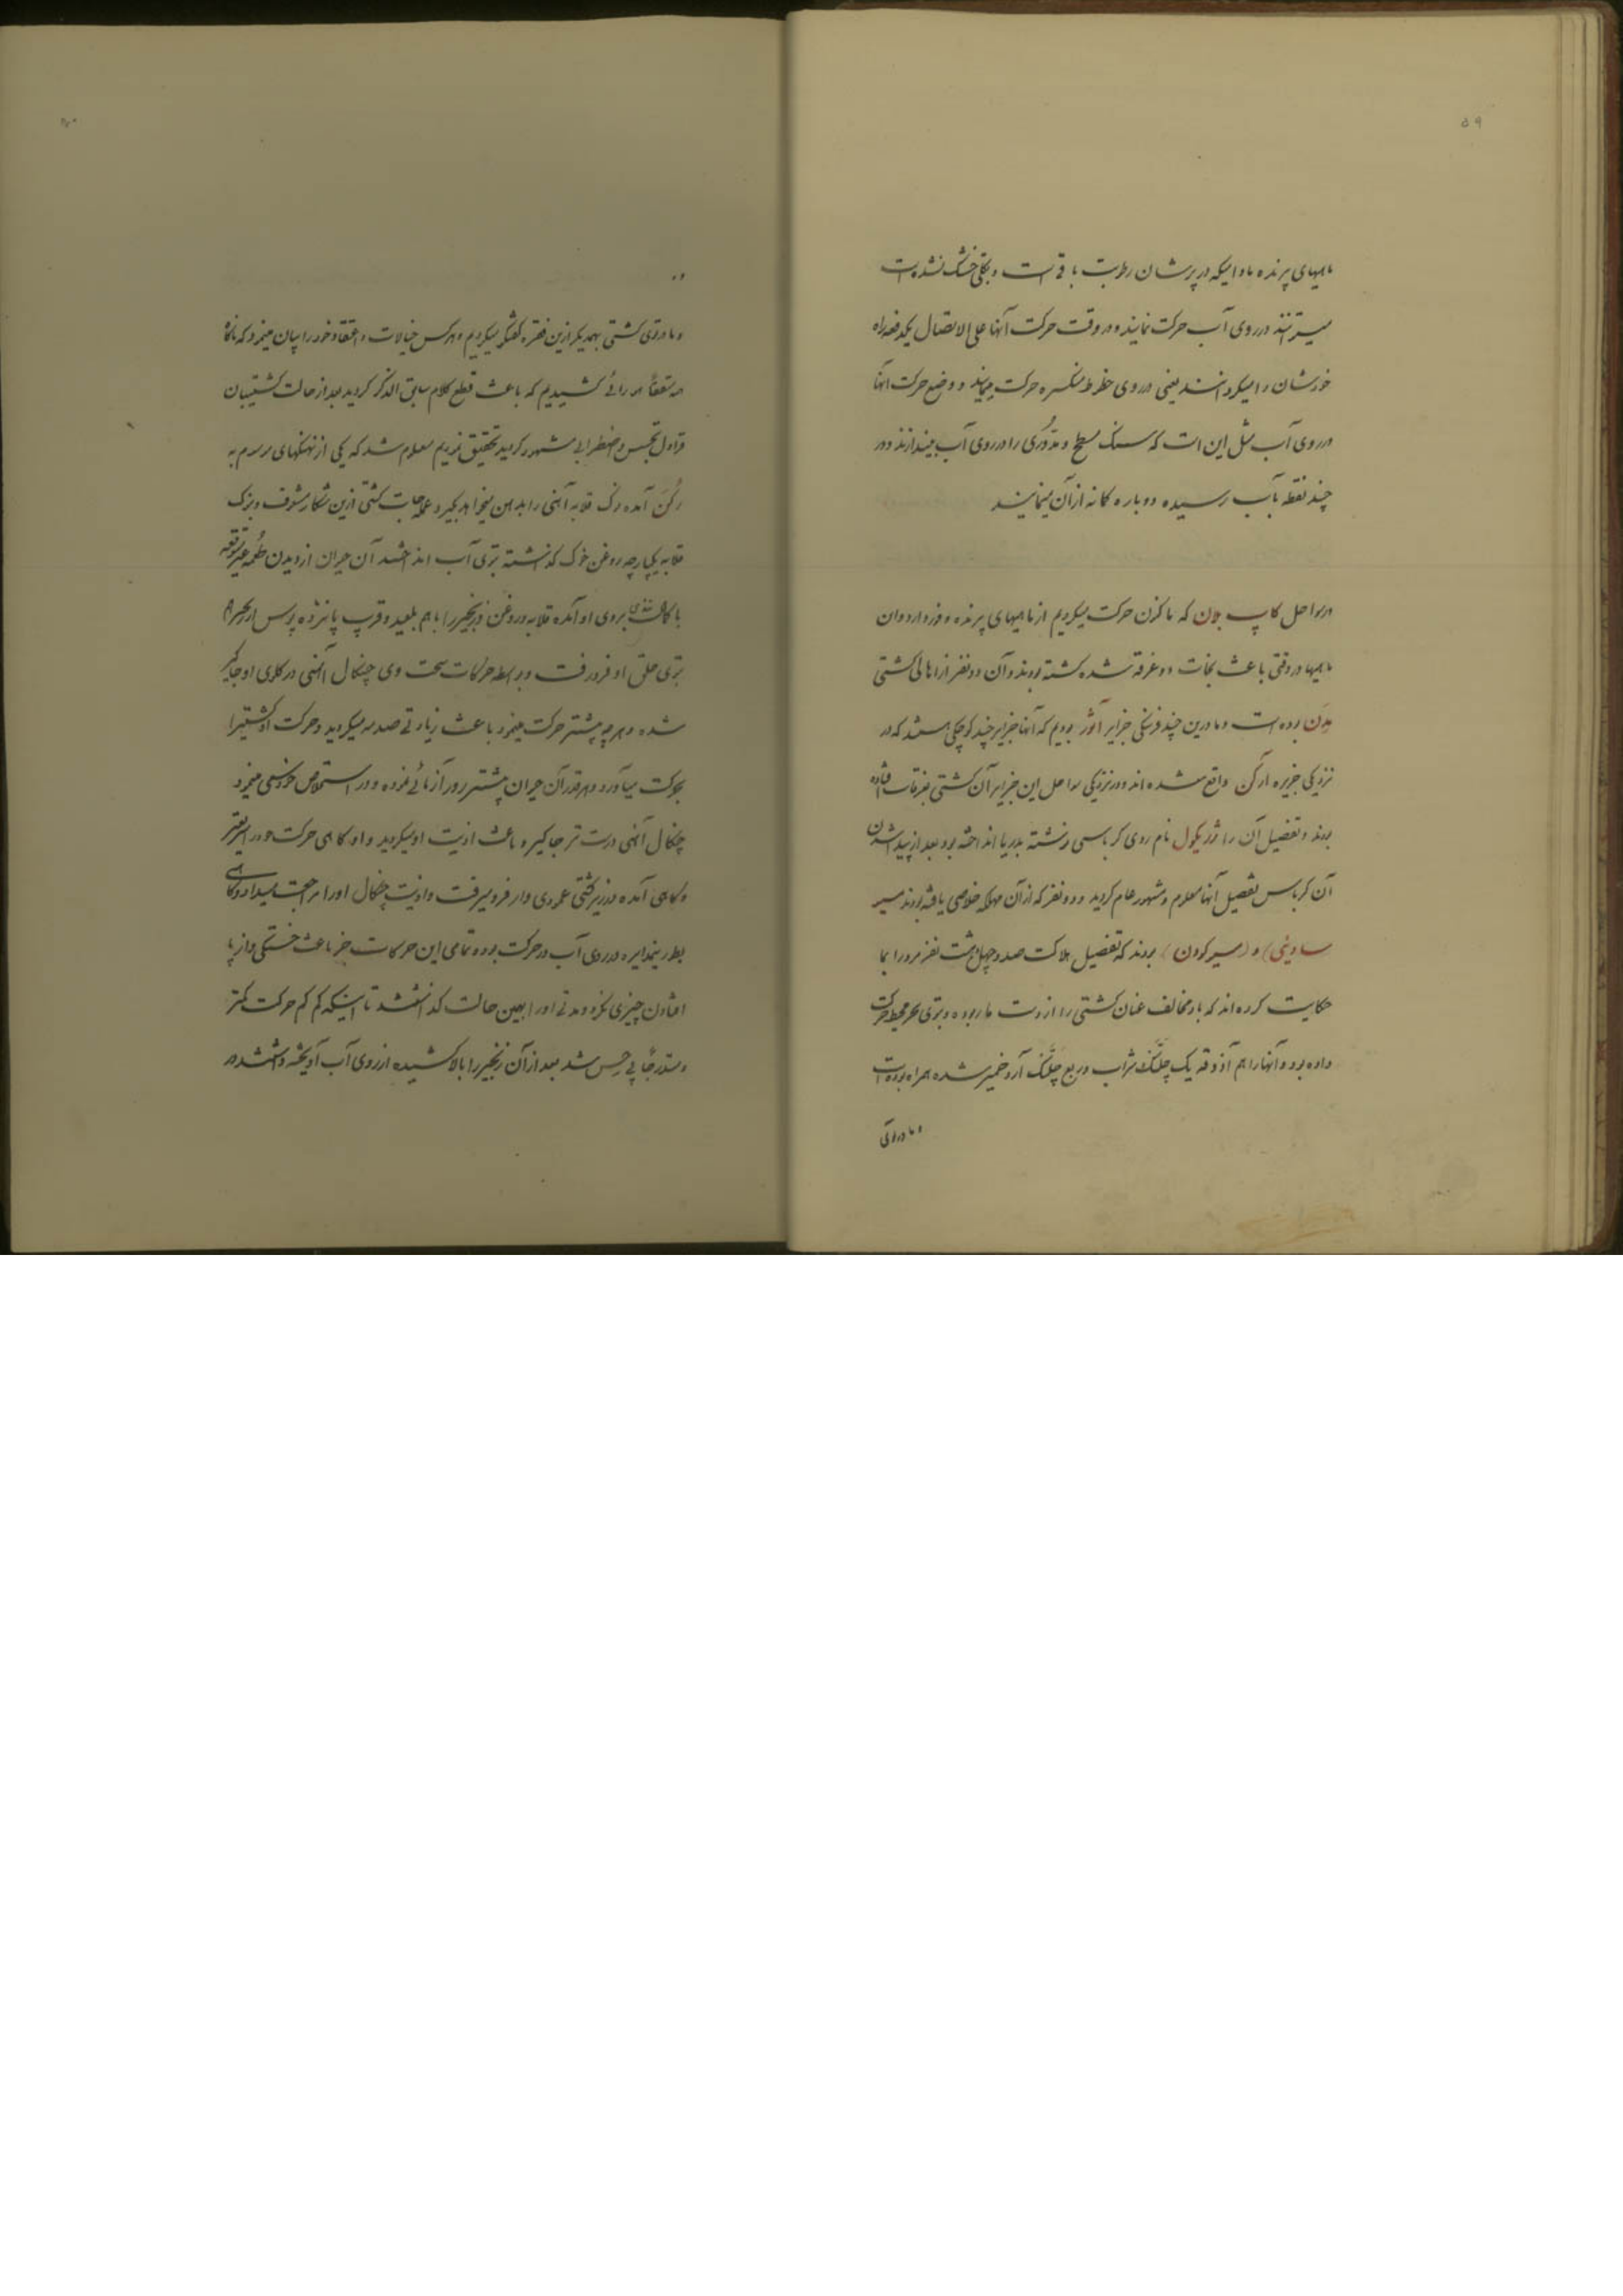 ۵۹
ماهیهای پرنده مادامیکه در پرشان رطوبت باقی است و بکلی خشک نشده است
میتوانند در روی آب حرکت نمایند و در وقت حرکت آنها علی الاتصال یکدفعه راه
خودشان را میگردانند یعنی در روی خطوط منکسره حرکت مینمایند و وضع حرکت آنها
در روی آب مثل این است که سنگ مسطح و مدوری را در روی آب بیندازند و در
چند نقطه بآب رسیده دوباره کمانه از آن مینمایند
در سواحل کاپ که ماکنون حرکت میکردیم از ماهیهای پرنده وفور دارد و آن
ماهیها در وقتی باعث نجات دو غرقه شده گشته بودند و آن دو نفر از اهالی کشتی
مدن بوده است و ما در بین چند فرسنگی جزایر آنژر بودیم که آنها جزایر چند کوچکی هستند که در
نزدیکی جزیره واقع شده اند و در نزدیکی سواحل این جزایر آن کشتی بغرقاب افتاده
بودند و تفضیل آن را نام روی کرباسی نوشته بدریا انداخته بود بعد از پیدا شدن
آن کرباس تفصیل آنها معلوم و مشهور عام گردید و دو نفر که از آن مهلکه خلاصی یافته بودند مسیر
ساوینی) و (مسیر کودن) بودند که تفضیل هلاکت صد و چهل و هشت نفر مرد را بما
حکایت کرده اند که باد مخالف عنان کشتی را از دست ما ربوده و بتوی بحر محیط حرکت
داده بود و آنها را هم آذوقه یک چلنک شراب و ربع چلنک آرد خمیر شده همراه بوده است
و ما در توی
و ما در توی کشتی بهمدیگر ازین فقره گفتگو میکردیم و هر کس خیالات و اعتقاد خود را بیان مینمود که ناگاه
شنیدیم که باعث قطع کلام سابق الذکر گردید بعد از حالت کشتیبان
قراول تجسس و اضطرابی مشهود گردید تحقیق نمودیم معلوم شد که یکی از نهنگهای موسوم به
آمده قلابه آهنی را بدهن میخواهد بگیرد و عملجات کشتی ازین شکار مشعوف و بنوک
قلابه یکپارچه روغن خوک گذاشته بتوی آب انداختند آن حیوان از دیدن طعمه غیر مترقبه
با کمال تندی بروی او آمده قلابه و روغن و زنجیر را با هم بلعید و قریب پانزده پوس از زنجیر هم
بتوی حلق او فرو رفت و بواسطه حرکات سخت وی چنکال آهنی در گلوی او جایگیر
شده و هر چه بیشتر حرکت مینمود باعث زیادتی صدمه میگردید و حرکت او کشتی را
بحرکت میآورد و هر قدر آن حیوان بیشتر زور آزمائی نموده و در استخلاص خود سعی مینمود
چنکال آهنی درست تر جاگیر و باعث اذیت او میگردید و او گاهی حرکت
و گاهی آمده در زیر کشتی عمودی وار فرو میرفت و اذیت چنکال او را مراجعت میداد و گاهی
بطور نیم دایره در روی آب در حرکت بود و تمامی این حرکات جز باعث خستگی و از پا
افتادن چیزی نکرد و مدتی او را بهمین حالت گذاشتند تا اینکه کم کم حرکت کمتر
و متدرجاً بی حس شد بعد از آن زنجیر را بالا کشیده از روی آب آویخته داشتند در